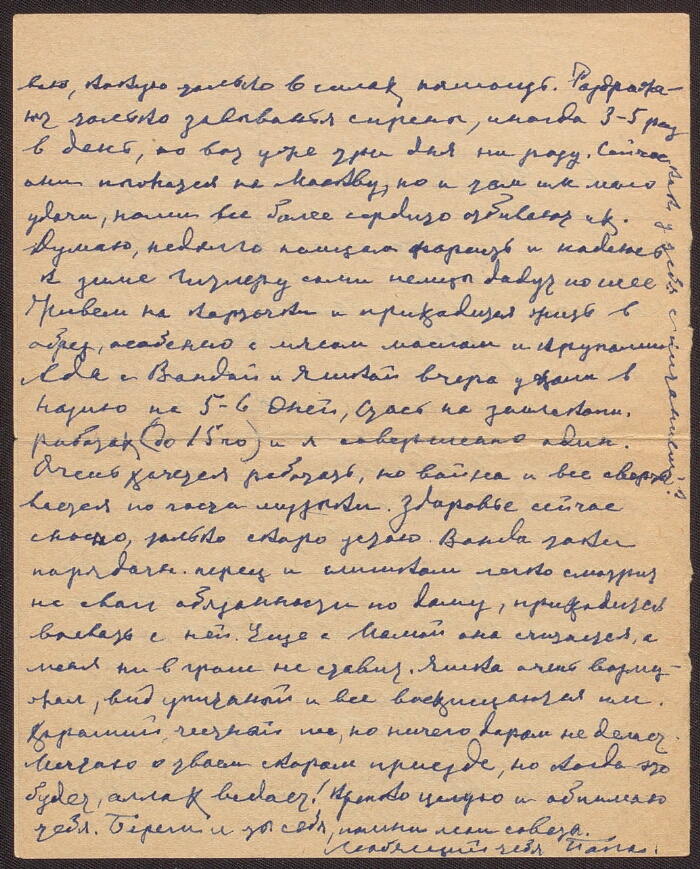 вею, какую только в силах помощь. Раздража-
ют только завывания сирены, иногда 3-5 раз
в день, но вот уже три дня ни разу. Сейчас
они на Москву, но и там им мало
удачи, наши все более сердито отбивают их.
Думаю, недолго и надеюсь
к зиме Гитлеру сами немцы дадут по шее
Живем на карточки и приходится жить в
обрез, особенно с мясом маслом и крупами
Ада с Вандой и Яшкой вчера уехали в
на 5-6 дней, Стась на
работах (до 15го) и я совершенно один.
Очень хочется работать, но война и все сверты-
вается по части музыки. Здоровье сейчас
сносно, только скоро устаю. Ванда таки
порядочн. перец и слишком легко смотрит
на свои обязанности по дому, приходится
воевать с ней. Еще с Мамой она считается, а
меня ни в грош не ставит. Яшка очень возму-
жал, вид и все восхищаются им.
Хороший, честный пес, но ничего даром не делает.
Мечтаю о твоем скором приезде, но когда это
будет, аллах ведает! Крепко целую и обнимаю
тебя. Береги и ты себя, помни мои советы.
Любящий тебя Папа.
как у тебя с питанием?